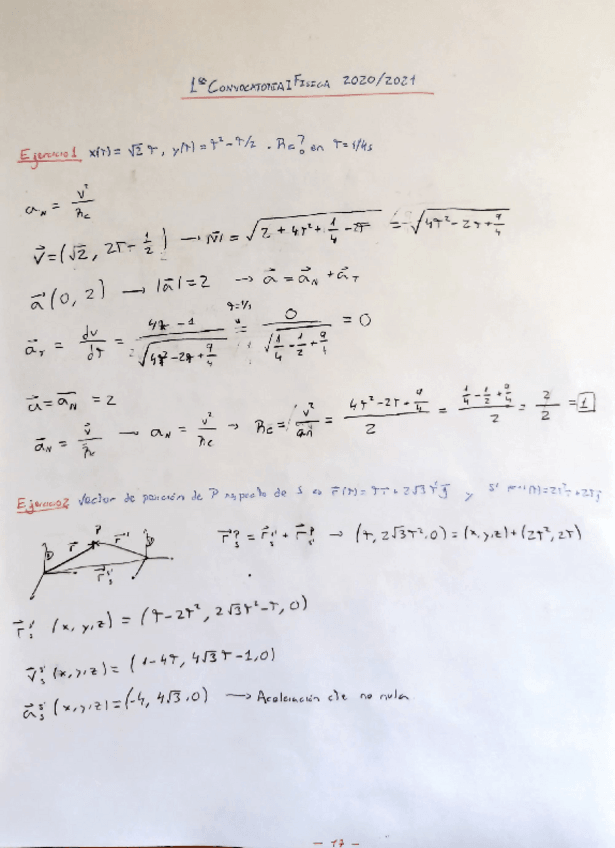 1ª CONVOCATORIA FISICA 2020/2021
Ejercicio 1 x(t) = √2 t, y(t) = t² - t/2 . Rc? en t = 1/4s
a_N = v²/Rc
v⃗ = (√2, 2t - 1/2) → |v⃗| = √(2 + 4t² + 1/4 - 2t) = √(4t² - 2t + 9/4)
a⃗ (0, 2) → |a⃗| = 2 → a⃗ = a⃗_N + a⃗_T
a⃗_T = dv/dt = (4t - 1)/√(4t² - 2t + 9/4) = 0/√(1/4 - 1/2 + 9/4) = 0
a⃗ = a⃗_N = 2
a⃗_N = v⃗/Rc → a_N = v²/Rc → Rc = v²/a_N = (4t² - 2t + 9/4)/2 = (1/4 - 1/2 + 9/4)/2 = 2/2 = 1
Ejercicio 2 Vector de posición de P respecto de S es r⃗(t) = t i + 2√3 t² j y S' r⃗'(t) = 2t² i + 2t j
P
r⃗ r⃗'
r⃗_s^s'
r⃗_s^P = r⃗_s^s' + r⃗_s'^P → (t, 2√3 t², 0) = (x, y, z) + (2t², 2t)
r⃗_s^s' (x, y, z) = (t - 2t², 2√3 t² - t, 0)
v⃗_s^s' (x, y, z) = (1 - 4t, 4√3 t - 1, 0)
a⃗_s^s' (x, y, z) = (-4, 4√3, 0) → Aceleración cte no nula
- 17 -